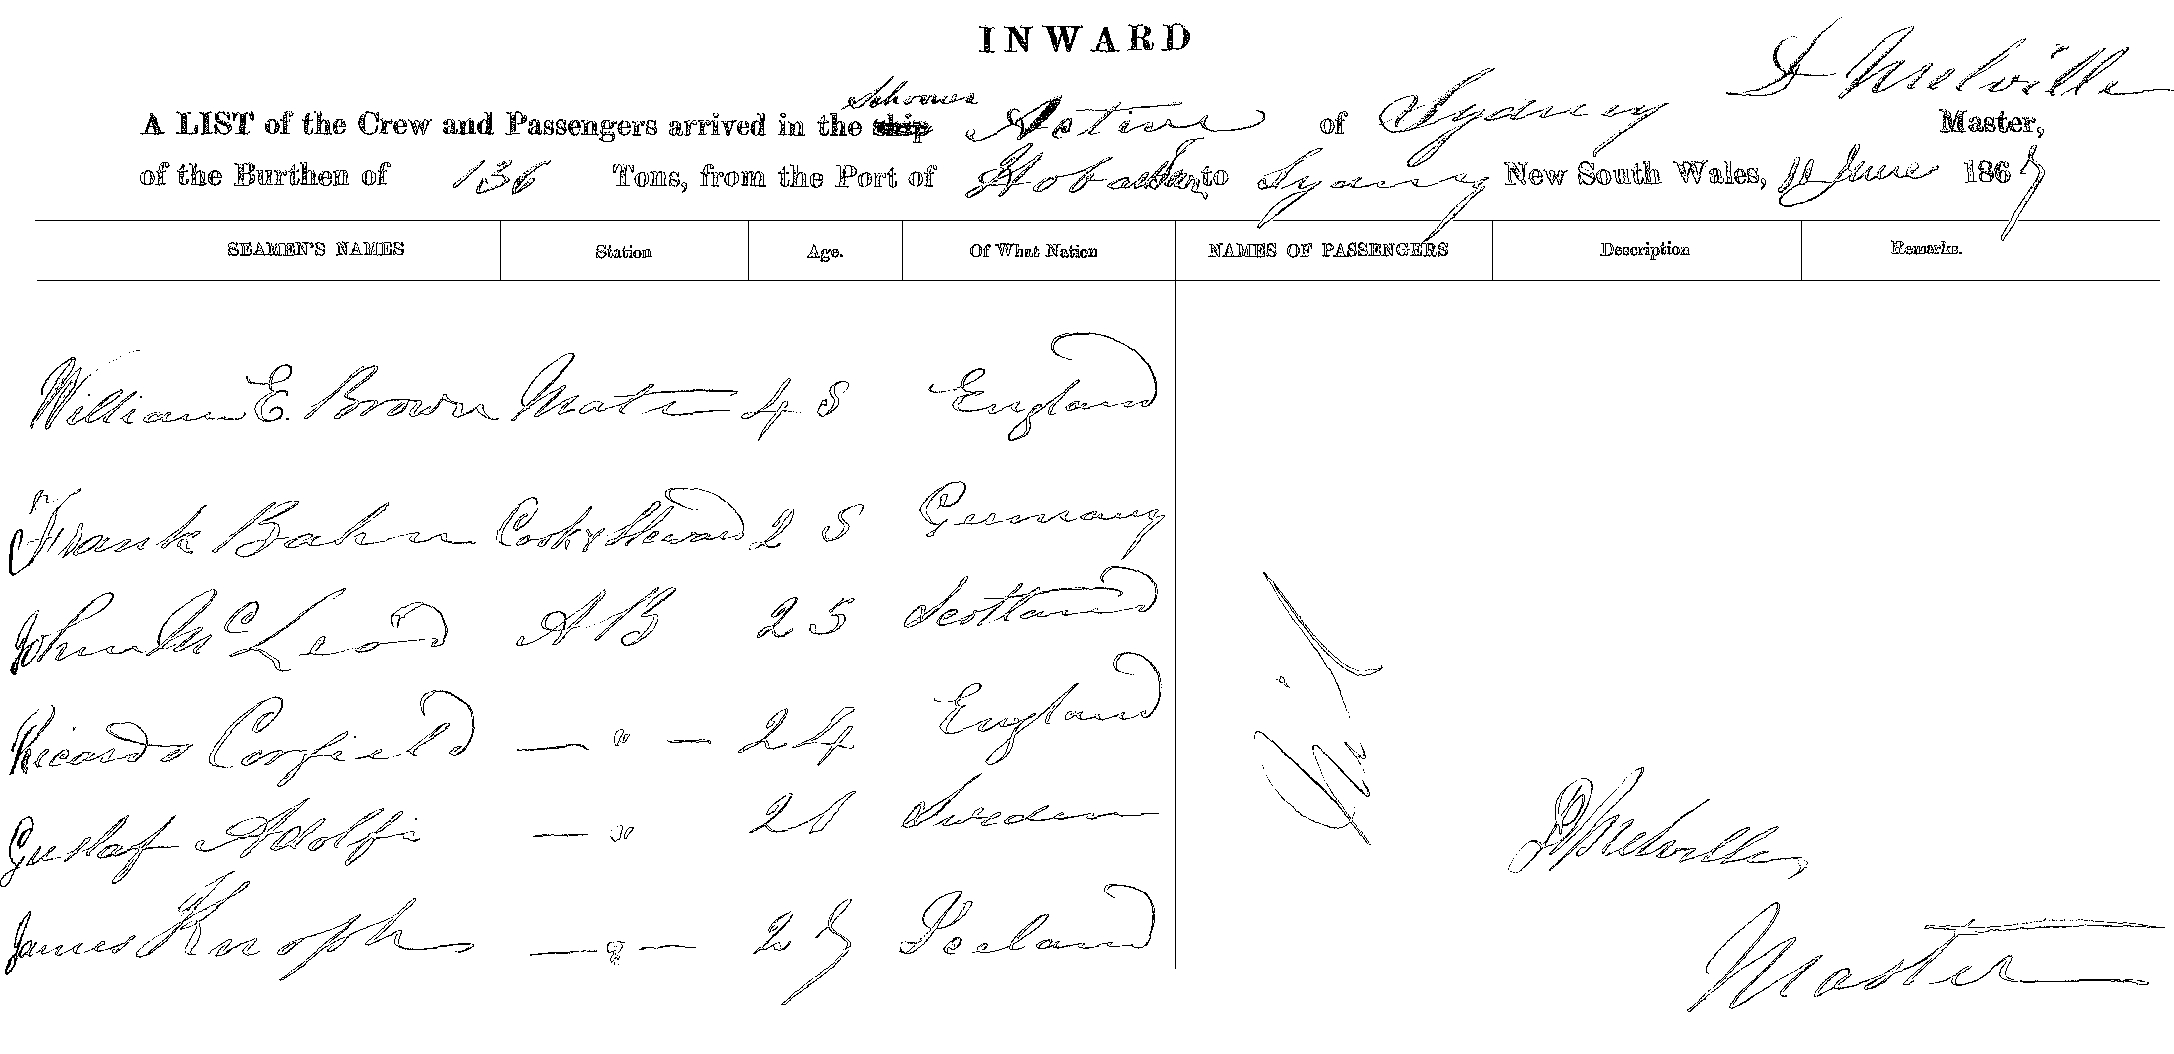 INWARD
D Melville
Schooner
A LIST of the Crew and Passengers arrived in the ship Active of Sydney Master,
of the Burthen of 136 Tons, from the Port of Hobart Town to Sydney New South Wales, 11 June 1867
SEAMEN'S NAMES Station Age. Of What Nation NAMES OF PASSENGERS Description Remarks.
William E. Brown Mate 45 England
Frank Bahn Cook & Steward 25 Germany
John McLeod AB 25 Scotland
Ricardo Corfield — " — 24 England
Gustaf Adolfi — " Sweden
James Knoph — " — 27 Iceland
Nil
D Melville
Master